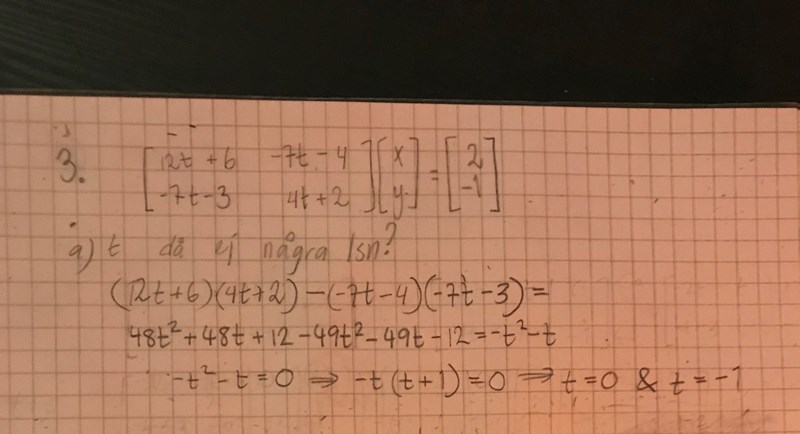 3. [12t + 6 -7t - 4] [x] = [2]
[-7t - 3 4t + 2] [y] [-1]
a) t då ej några lsn?
(12t + 6)(4t + 2) - (-7t - 4)(-7t - 3) =
48t² + 48t + 12 - 49t² - 49t - 12 = -t² - t
-t² - t = 0 ⇒ -t(t + 1) = 0 ⇒ t = 0 & t = -1